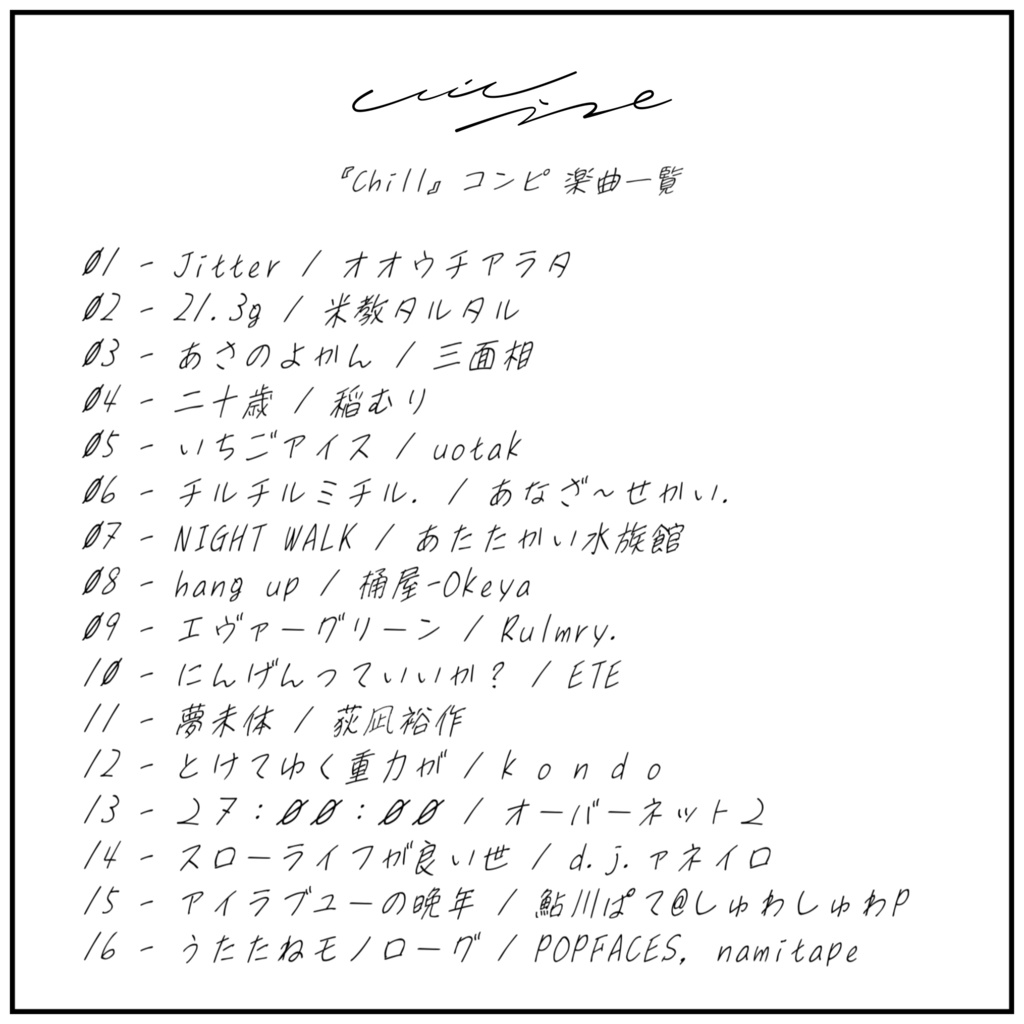 『Chill』コンピ 楽曲一覧
01 - Jitter / オオウチアラタ
02 - 21.3g / 米教タルタル
03 - あさのよかん / 三面相
04 - 二十歳 / 稲むり
05 - いちごアイス / uotak
06 - チルチルミチル. / あなざ～せかい.
07 - NIGHT WALK / あたたかい水族館
08 - hang up / 桶屋-Okeya
09 - エヴァーグリーン / Rulmry.
10 - にんげんっていいか? / ETE
11 - 夢未体 / 荻凪裕作
12 - とけてゆく重力が / ｋｏｎｄｏ
13 - ２７：００：００ / オーバーネット２
14 - スローライフが良い世 / d.j.ァネイロ
15 - アイラブユーの晩年 / 鮎川ぱて@しゅわしゅわP
16 - うたたねモノローグ / POPFACES, namitape